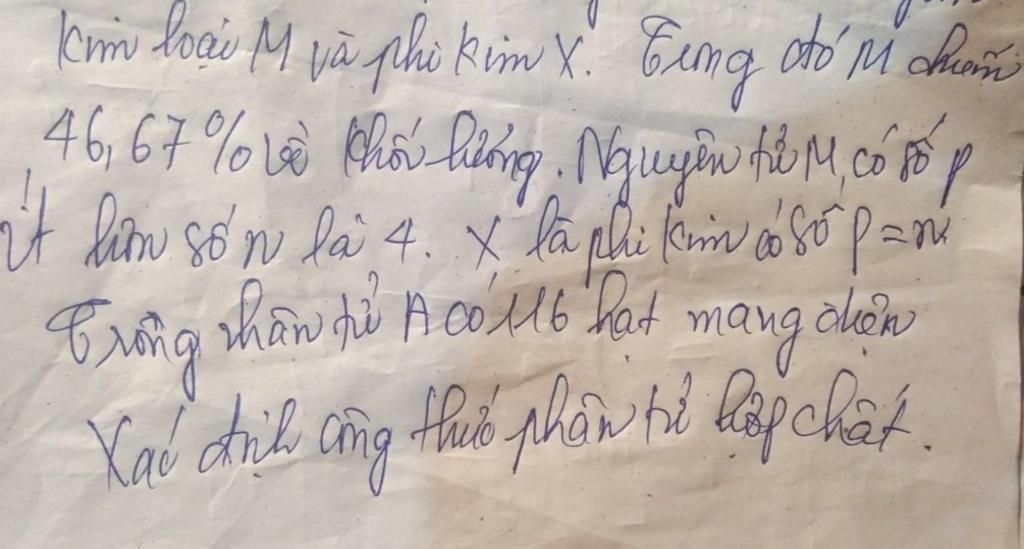 Kim loại M và phi kim X. Trong đó M chiếm
46,67% về khối lượng. Nguyên tử M, có số p
ít hơn số n là 4. X là phi kim có số p = n
Trong phân tử A có 116 hạt mang điện
Xác định công thức phân tử hợp chất.